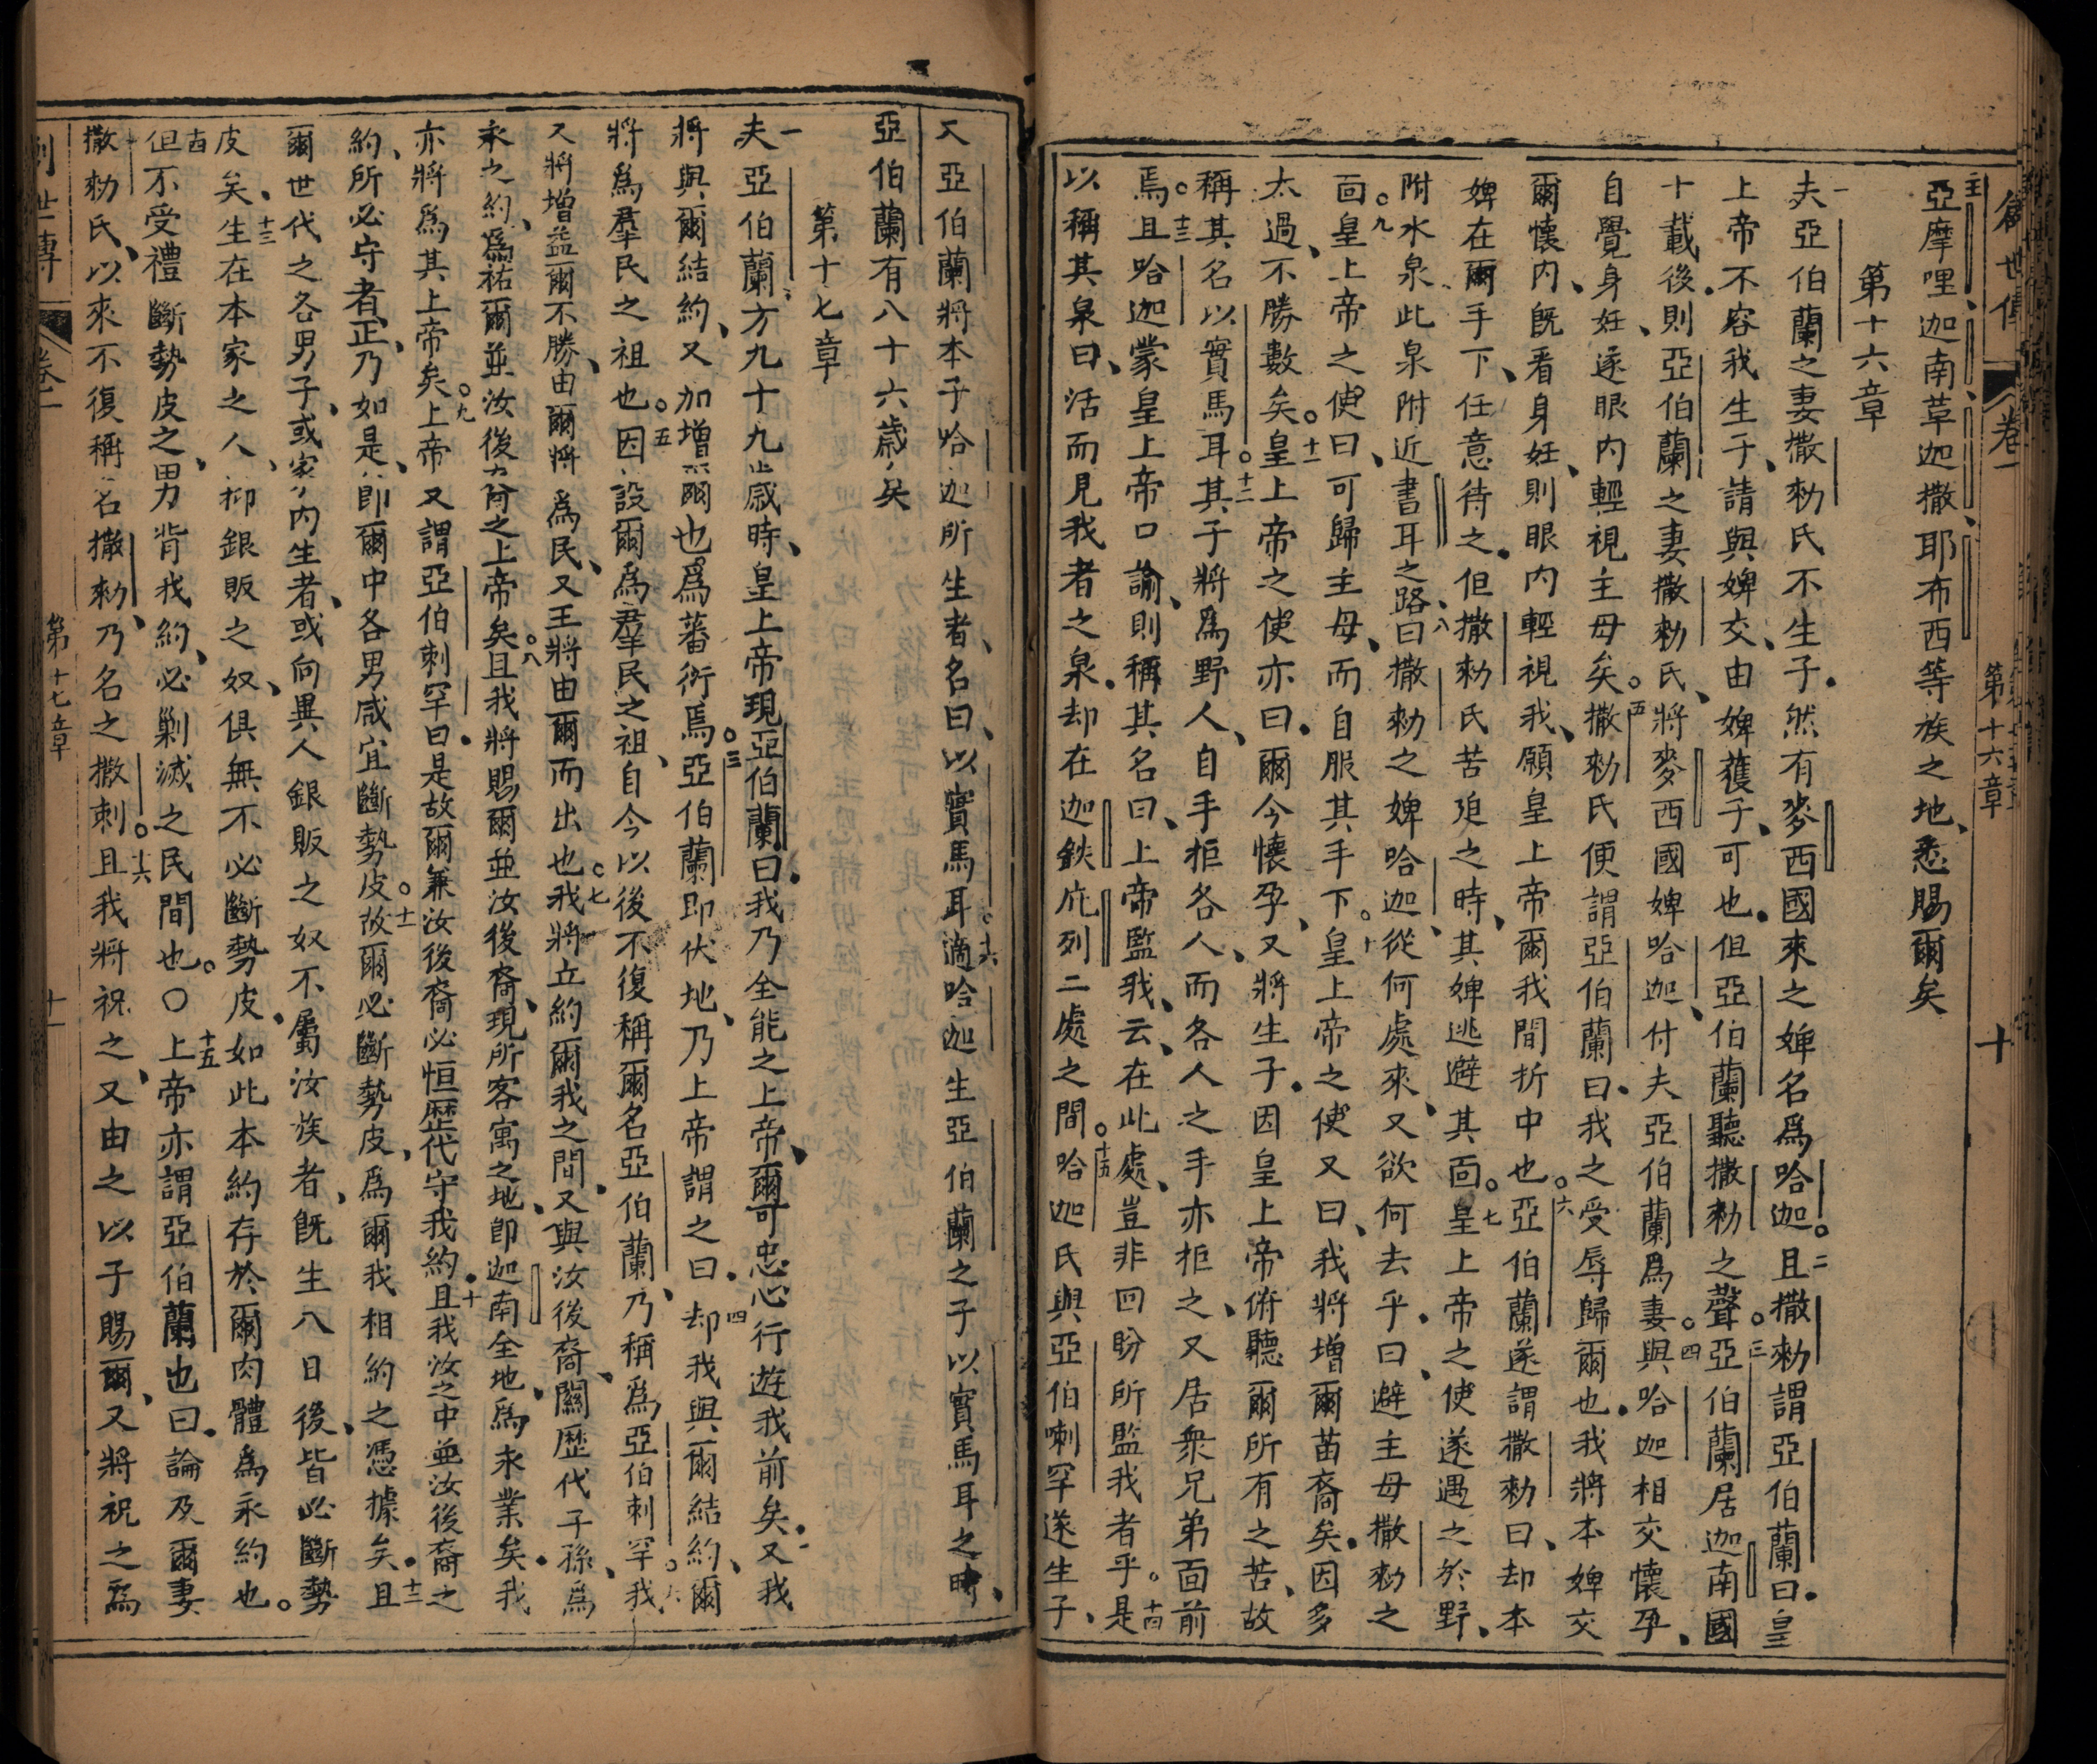 創世傳 卷一 第十六章 十
亞摩哩迦南草迦撒耶布西等族之地、悉賜爾矣
第十六章
一夫亞伯蘭之妻撒勑氏不生子然有麥西國來之婢名爲哈迦。二且撒勑謂亞伯蘭曰皇
上帝不容我生子、請與婢交、由婢獲子、可也但亞伯蘭聽撒勑之聲。三亞伯蘭居迦南國
十載後則亞伯蘭之妻撒勑氏、將麥西國婢哈迦、付夫亞伯蘭爲妻。四與哈迦相交懷孕、
自覺身妊、遂眼內輕視主母矣。五撒勑氏便謂亞伯蘭曰我之受辱歸爾也我將本婢交
爾懷內、旣看身妊、則眼內輕視我、願皇上帝爾我間折中也。六亞伯蘭遂謂撒勑曰、却本
婢在爾手下、任意待之但撒勑氏苦廹之時、其婢逃避其靣。七皇上帝之使遂遇之於野、
附水泉此泉附近書耳之路、八曰撒勑之婢哈迦、從何處來、又欲何去乎曰、避主母撒勑之
靣。九皇上帝之使曰、可歸主母、而自服其手下。十皇上帝之使又曰、我將增爾苗裔矣因多
太過、不勝數矣。十一皇上帝之使亦曰爾今懷孕、又將生子因皇上帝俯聽爾所有之苦、故
稱其名以實馬耳。十二其子將爲野人、自手拒各人、而各人之手亦拒之、又居衆兄弟面前
焉。十三且哈迦蒙皇上帝口諭、則稱其名曰、上帝監我、云在此處、豈非回盼所監我者乎。十四是
以稱其泉曰、活而見我者之泉却在迦鉄庇列二處之間。十五哈迦氏與亞伯喇罕遂生子、
又亞伯蘭將本子哈迦所生者、名曰、以實馬耳。十六適哈迦生亞伯蘭之子以實馬耳之時、
亞伯蘭有八十六歲矣
第十七章
一夫亞伯蘭方九十九歲時、皇上帝現亞伯蘭曰我乃全能之上帝、爾可忠心行遊我前矣二又我
將與爾結約、又加增爾也爲蕃衍焉。三亞伯蘭即伏地、乃上帝謂之曰四却我與爾結約、爾
將爲羣民之祖也。五因設爾爲羣民之祖、自今以後不復稱爾名亞伯蘭、乃稱爲亞伯刺罕。六我
又將增益爾不勝、由爾將爲民、又王將由爾而出也。七我將立約爾我之間又與汝後裔、闗歷代子孫、爲
永之約、爲祐爾並汝後裔之上帝矣。八且我將賜爾並汝後裔、現所客寓之地、即迦南全地、爲永業矣我
亦將爲其上帝矣。九上帝又謂亞伯刺罕曰是故爾兼汝後裔必恒歷代守我約十且我汝之中並汝後裔之
約、所必守者正、乃如是、即爾中各男咸宜斷勢皮。十一故爾必斷勢皮、爲爾我相約之憑據矣十二且
爾世代之各男子、或家內生者、或向異人銀販之奴不屬汝族者、旣生八日後、皆必斷勢
皮矣十三生在本家之人、抑銀販之奴、俱無不必斷勢皮如此本約存於爾肉體爲永約也。
十四但不受禮斷勢皮之、男背我約、必剿滅之民間也。〇十五上帝亦謂亞伯蘭也曰論及爾妻
撒勑氏、以來不復稱名撒勑、乃名之撒刺。十六且我將祝之、又由之以子賜爾、又將祝之爲
創世傳 卷一 第十七章 十一